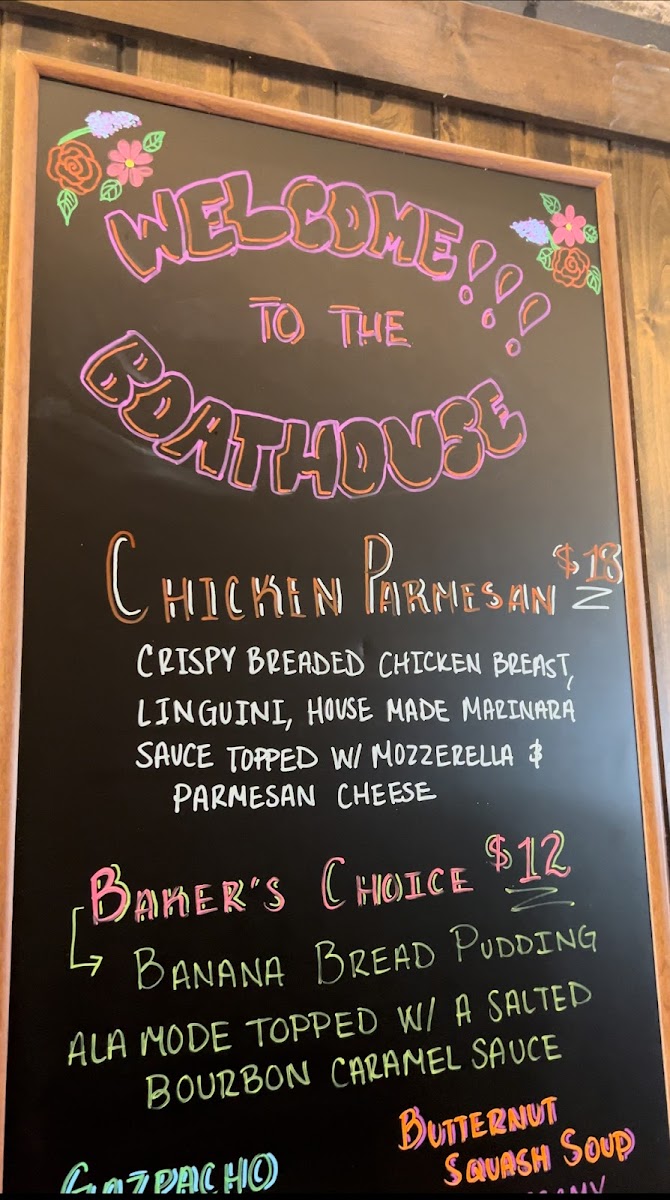 WELCOME!!!
TO THE
BOATHOUSE
CHICKEN PARMESAN $18
CRISPY BREADED CHICKEN BREAST,
LINGUINI, HOUSE MADE MARINARA
SAUCE TOPPED W/ MOZZERELLA &
PARMESAN CHEESE
BAKER'S CHOICE $12
BANANA BREAD PUDDING
ALA MODE TOPPED W/ A SALTED
BOURBON CARAMEL SAUCE
BUTTERNUT
SQUASH SOUP
GAZPACHO